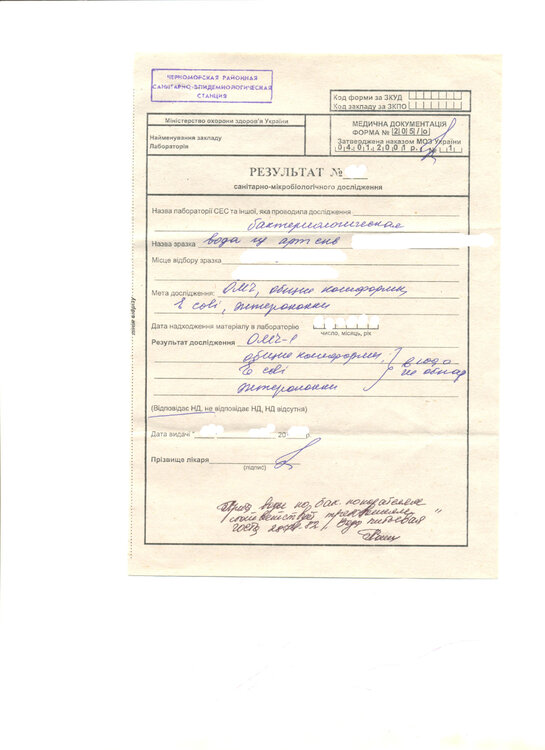 ЧЕРНОМОРСКАЯ РАЙОННАЯ
САНИТАРНО-ЭПИДЕМИОЛОГИЧЕСКАЯ
СТАНЦИЯ
Код форми за ЗКУД
Код закладу за ЗКПО
Міністерство охорони здоров'я України
Найменування закладу
Лабораторія
МЕДИЧНА ДОКУМЕНТАЦІЯ
ФОРМА № 205/о
Затверджена наказом МОЗ України
04.01.2001 р. № 1
РЕЗУЛЬТАТ №
санітарно-мікробіологічного дослідження
Назва лабораторії СЕС та іншої, яка проводила дослідження
бактериологическая
Назва зразка вода из арт скв
Місце відбору зразка
Мета дослідження: ОМЧ, общие колиформы,
E coli, энтерококки
Дата надходження матеріалу в лабораторію
число, місяць, рік
Результат дослідження ОМЧ-1
общие колиформы
E coli
энтерококки
не обнар
(Відповідає НД, не відповідає НД, НД відсутня)
Дата видачі " " 20 р.
Прізвище лікаря
(підпис)
воды по бак. показателям
соответствует требованиям
ГОСТ вода питьевая
лінія відрізу